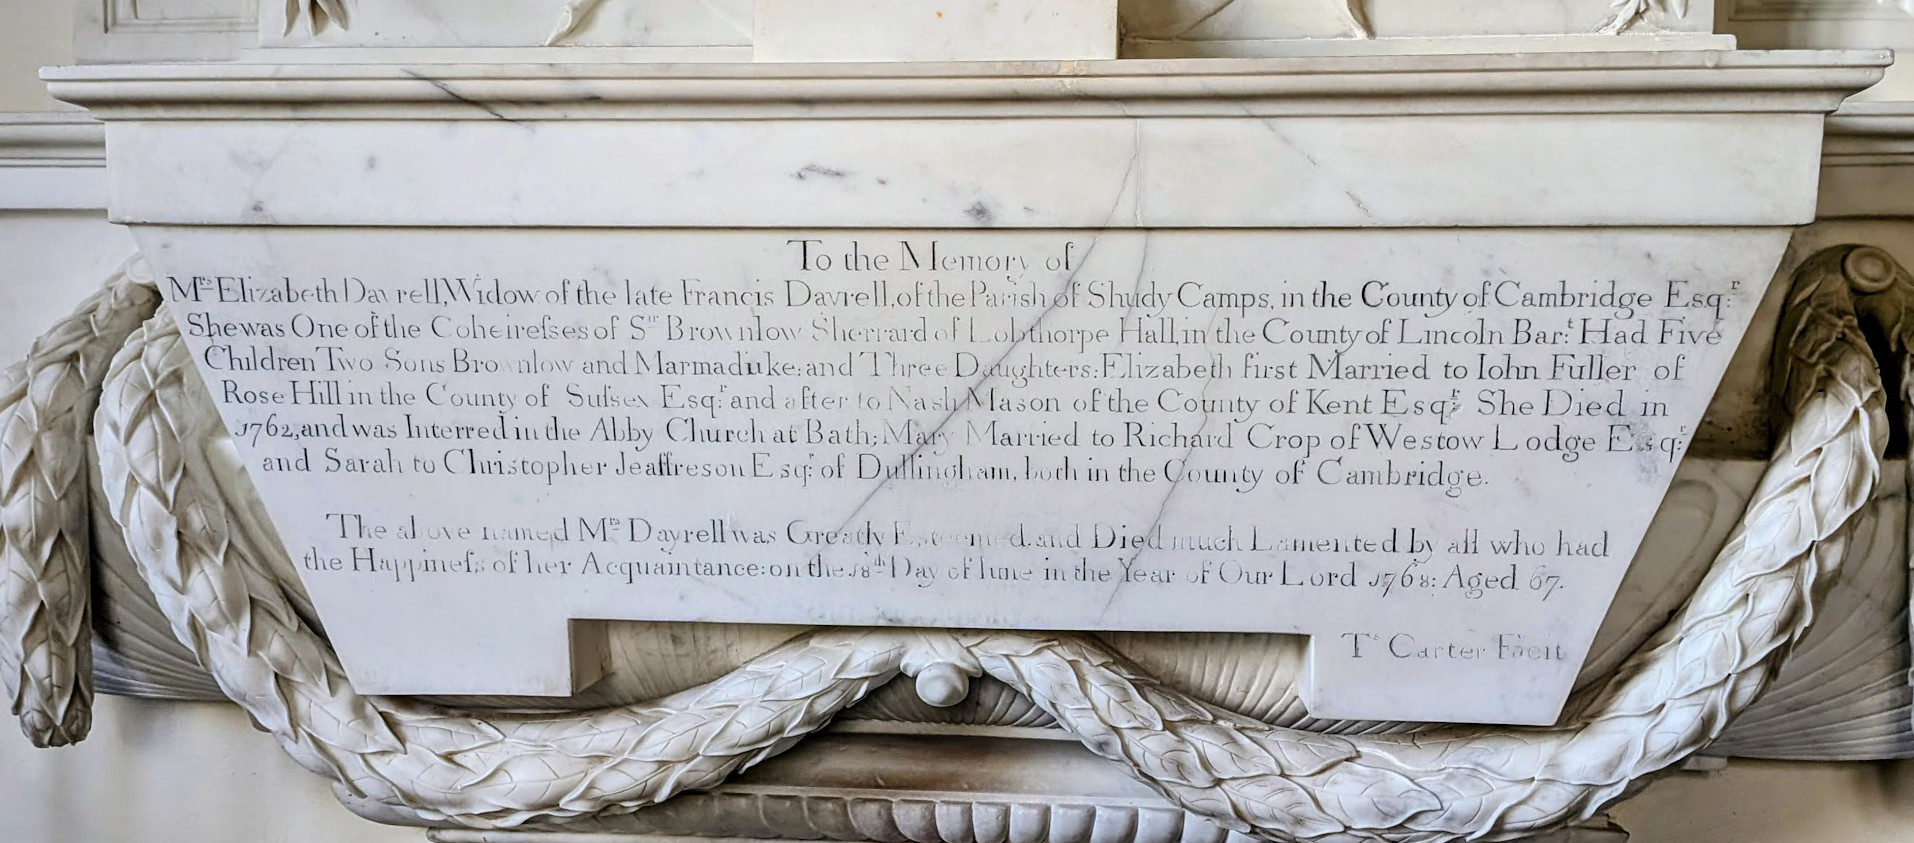 To the Memory of
Mrs Elizabeth Dayrell, Widow of the late Francis Dayrell, of the Parish of Shudy Camps, in the County of Cambridge Esqr:
She was One of the Coheiresses of Sir Brownlow Sherrard of Lobthorpe Hall, in the County of Lincoln Bart: Had Five
Children Two Sons Brownlow and Marmaduke: and Three Daughters: Elizabeth first Married to Iohn Fuller of
Rose Hill in the County of Sussex Esqr: and after to Nash Mason of the County of Kent Esqr: She Died in
1762, and was Interred in the Abby Church at Bath; Mary Married to Richard Crop of Westow Lodge Esqr:
and Sarah to Christopher Jeaffreson Esqr: of Dullingham, both in the County of Cambridge.
The above named Mrs Dayrell was Greatly Esteemed, and Died much Lamented by all who had
the Happiness of her Acquaintance: on the 18th Day of Iune in the Year of Our Lord 1768: Aged 67.
Ts Carter Fecit